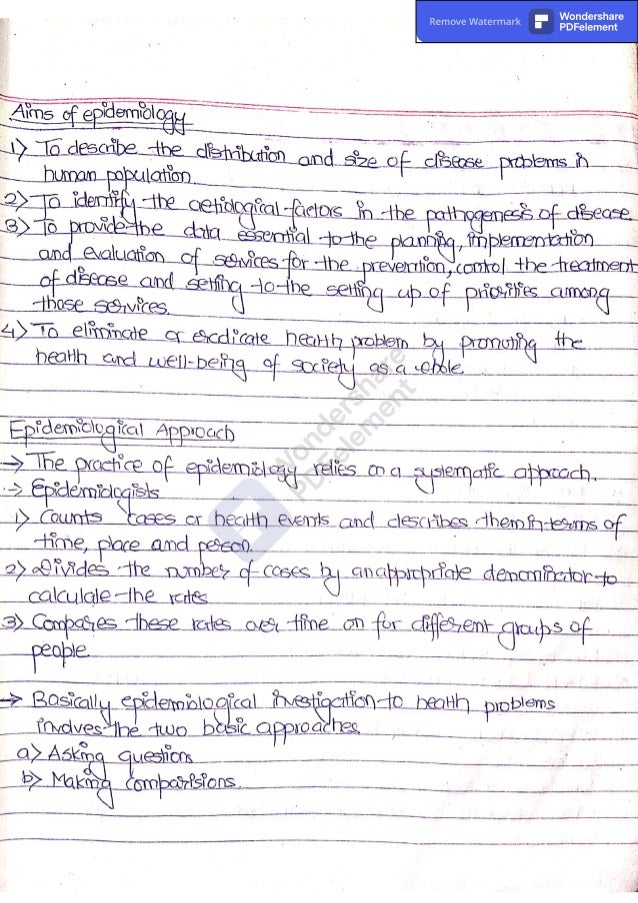 Remove Watermark
Wondershare
PDFelement
Aims of epidemiology
1> To describe the distribution and size of disease problems in
human population.
2> To identify the aetiological factors in the pathogenesis of disease
3> To provide the data essential to the planning, implementation
and evaluation of services for the prevention, control the treatment
of disease and setting to the setting up of priorities among
those services.
4> To eliminate or eradicate health problem by promoting the
health and well-being of society as a whole
Epidemiological Approach
→ The practice of epidemiology relies on a systematic approach.
→ Epidemiologists
1> Counts cases or health events and describes them in terms of
time, place and person.
2> Divides the number of cases by an appropriate denominator to
calculate the rates
3> Compares these rates over time on for different groups of
people
→ Basically epidemiological investigation to health problems
involves the two basic approaches
a> Asking questions
b> Making comparisions.
Wondershare
PDFelement